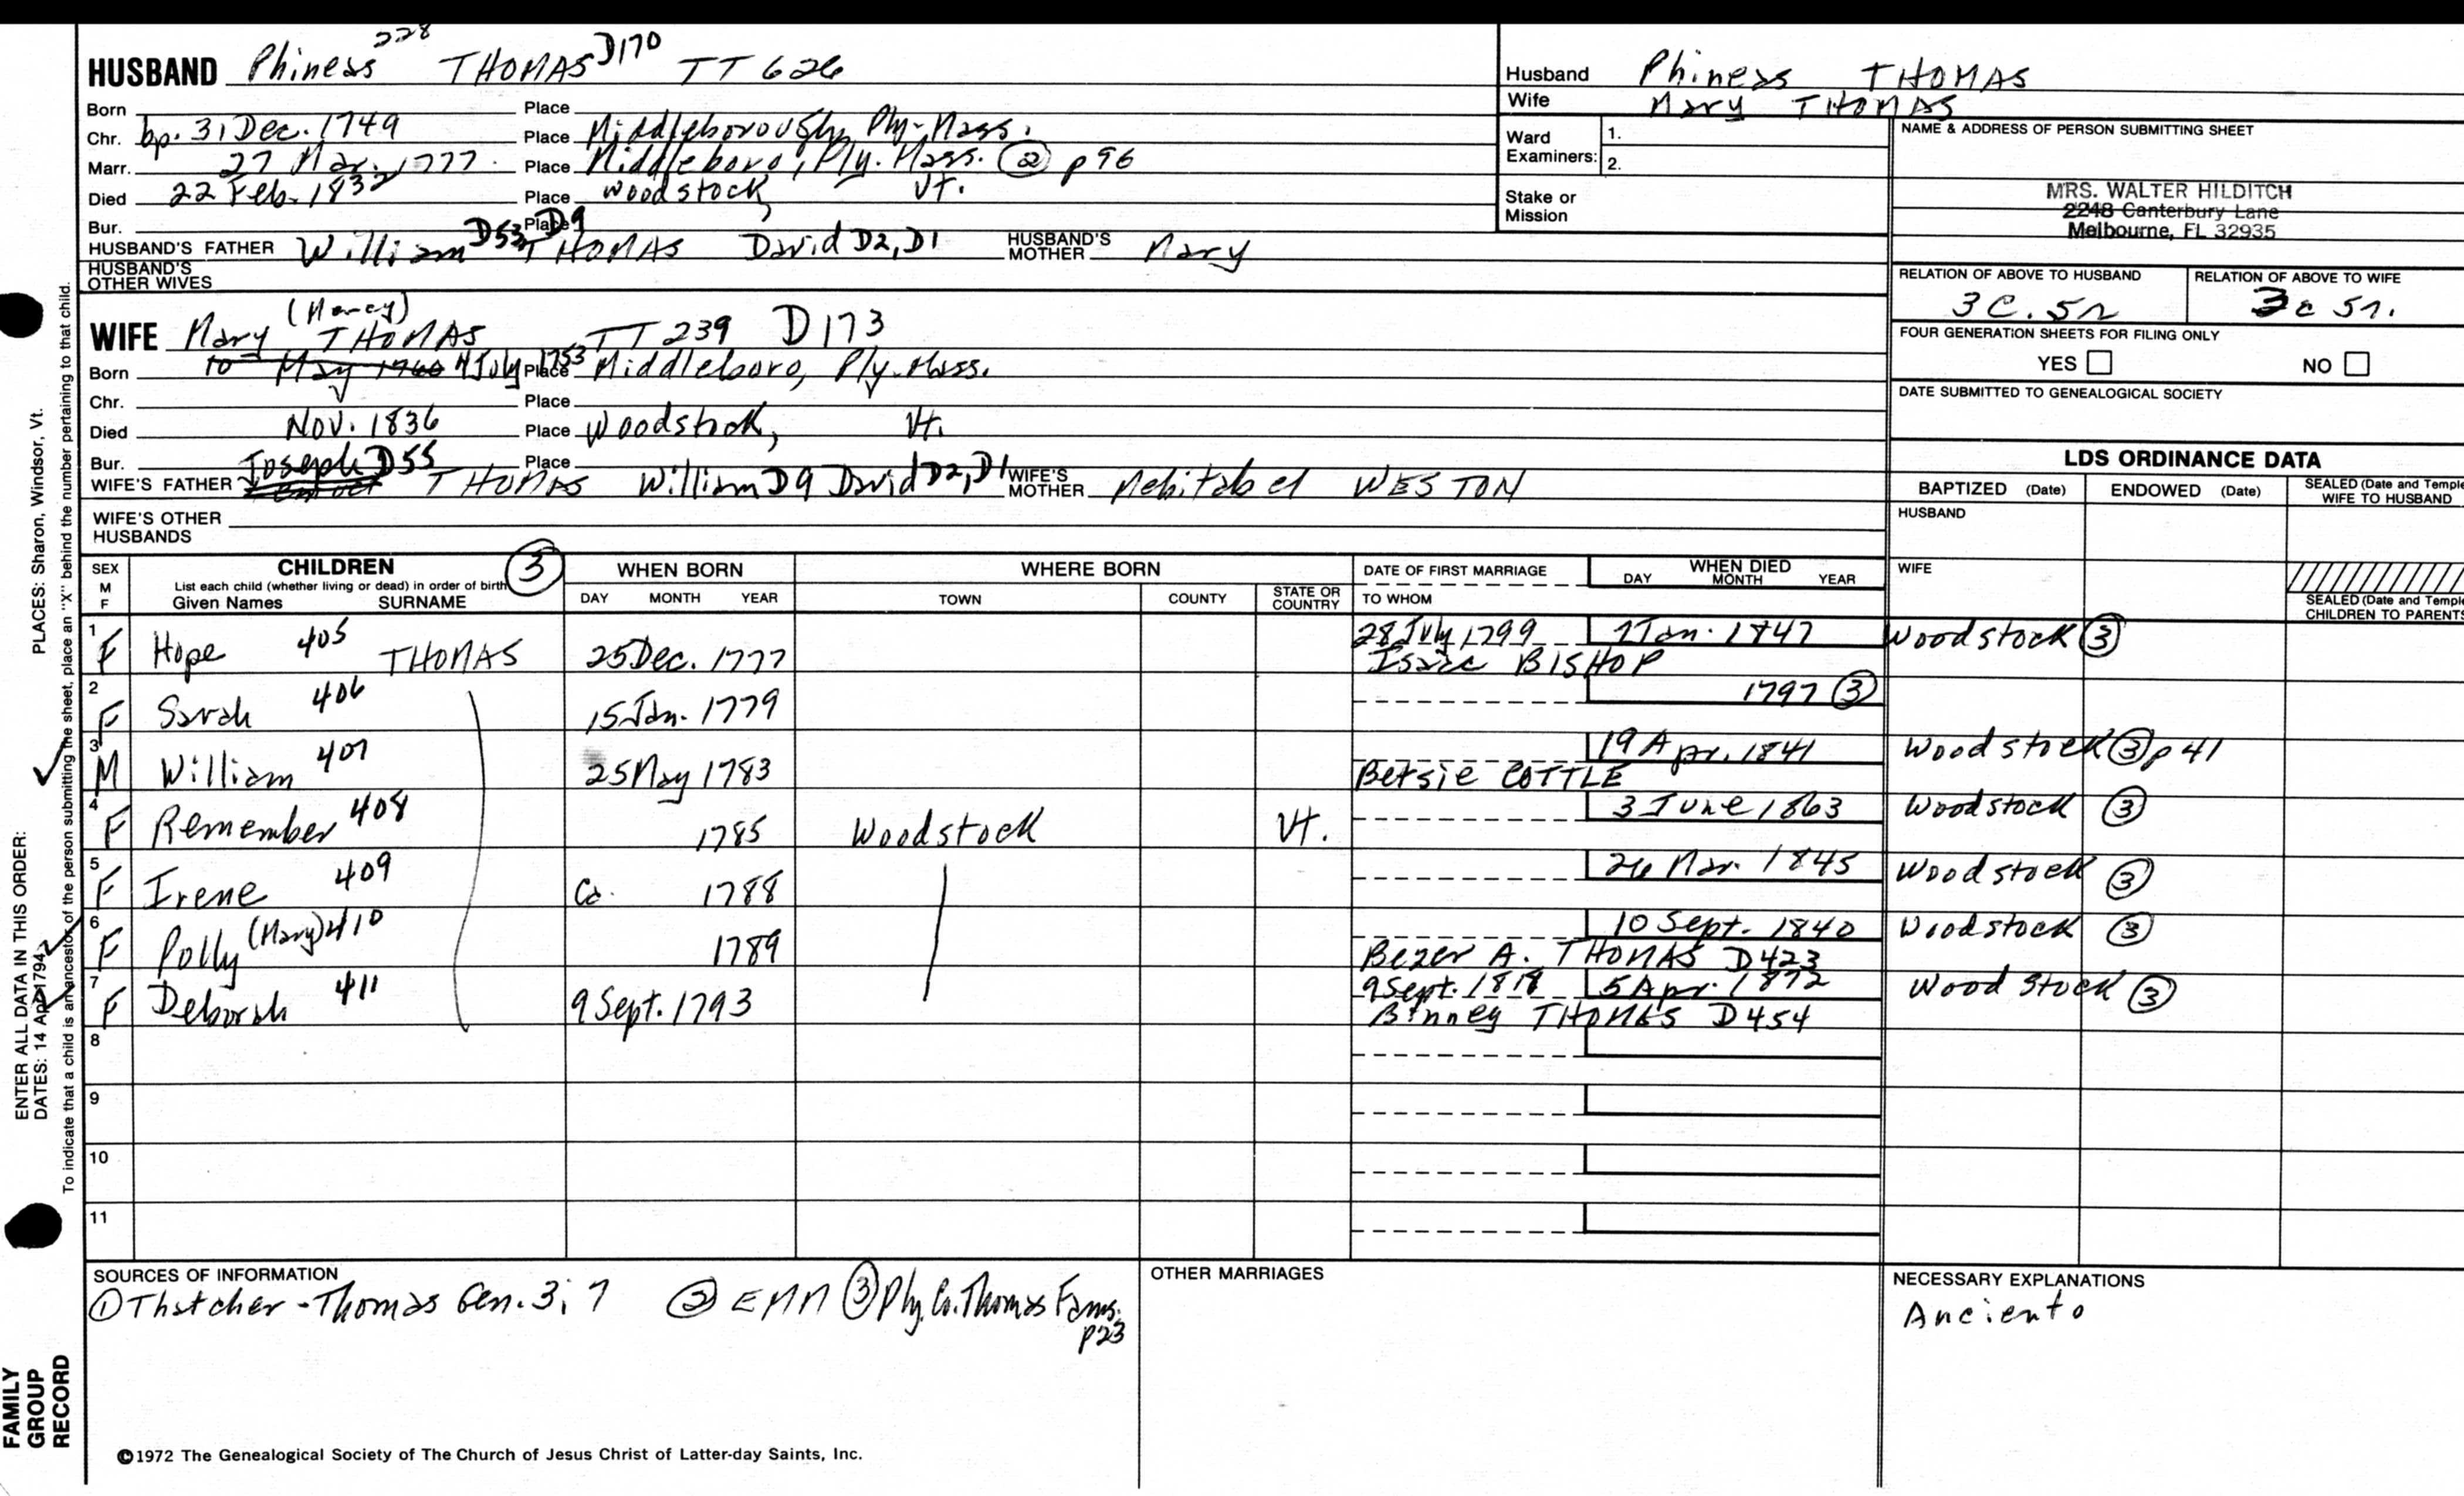 HUSBAND Phineas 228 THOMAS D170 TT 626
Born Place
Chr. bp. 31 Dec. 1749 Place Middleborough, Ply-Mass.
Marr. 27 Mar. 1777. Place Middleboro, Ply. Mass. ② p96
Died 22 Feb. 1832 Place Woodstock, Vt.
Bur. Place
HUSBAND'S FATHER William D53 D9 THOMAS David D2, D1 HUSBAND'S MOTHER Mary
HUSBAND'S OTHER WIVES
WIFE Mary (Mercy) THOMAS TT 239 D173
Born 10 May 1760 4 July 1753 Place Middleboro, Ply-Mass.
Chr. Place
Died Nov. 1836 Place Woodstock, Vt.
Bur. Place
WIFE'S FATHER Joseph D55 THOMAS William D9 David D2, D1 WIFE'S MOTHER Mehitabel WESTON
WIFE'S OTHER HUSBANDS
Husband Phineas THOMAS
Wife Mary THOMAS
Ward Examiners: 1. 2.
Stake or Mission
NAME & ADDRESS OF PERSON SUBMITTING SHEET
MRS. WALTER HILDITCH
2248 Canterbury Lane
Melbourne, FL 32935
RELATION OF ABOVE TO HUSBAND RELATION OF ABOVE TO WIFE
3C. 5r 3c 5r.
FOUR GENERATION SHEETS FOR FILING ONLY
YES NO
DATE SUBMITTED TO GENEALOGICAL SOCIETY
LDS ORDINANCE DATA
BAPTIZED (Date) ENDOWED (Date) SEALED (Date and Temple) WIFE TO HUSBAND
HUSBAND
WIFE
SEALED (Date and Temple) CHILDREN TO PARENTS
SEX M F CHILDREN ③ WHEN BORN WHERE BORN DATE OF FIRST MARRIAGE WHEN DIED
List each child (whether living or dead) in order of birth
Given Names SURNAME DAY MONTH YEAR TOWN COUNTY STATE OR COUNTRY TO WHOM DAY MONTH YEAR
1 F Hope 405 THOMAS 25 Dec. 1777 28 July 1799 1 Jan. 1847 Woodstock ③
Isaac BISHOP
2 F Sarah 406 15 Jan. 1779 1797 ③
3 M William 407 25 May 1783 19 Apr. 1841 Woodstock ③ p 41
Betsie COTTLE
4 F Remember 408 1785 Woodstock Vt. 3 June 1863 Woodstock ③
5 F Irene 409 Ca. 1788 26 Mar. 1845 Woodstock ③
6 F Polly (Mary) 410 1789 10 Sept. 1840 Woodstock ③
Bezer A. THOMAS D423
7 F Deborah 411 9 Sept. 1793 9 Sept. 1818 5 Apr. 1872 Woodstock ③
Binney THOMAS D454
8
9
10
11
SOURCES OF INFORMATION
① Thatcher-Thomas Gen. 3; 7 ② EMM ③ Ply. Co. Thomas Fams. p23
OTHER MARRIAGES
NECESSARY EXPLANATIONS
Anciento
©1972 The Genealogical Society of The Church of Jesus Christ of Latter-day Saints, Inc.
FAMILY GROUP RECORD
ENTER ALL DATA IN THIS ORDER:
DATES: 14 Apr 1794
PLACES: Sharon, Windsor, Vt.
To indicate that a child is an ancestor of the person submitting the sheet, place an "X" behind the number pertaining to that child.